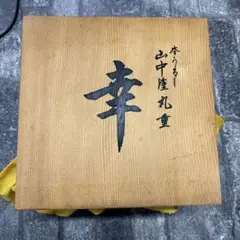 本うるし
山中塗丸重
幸